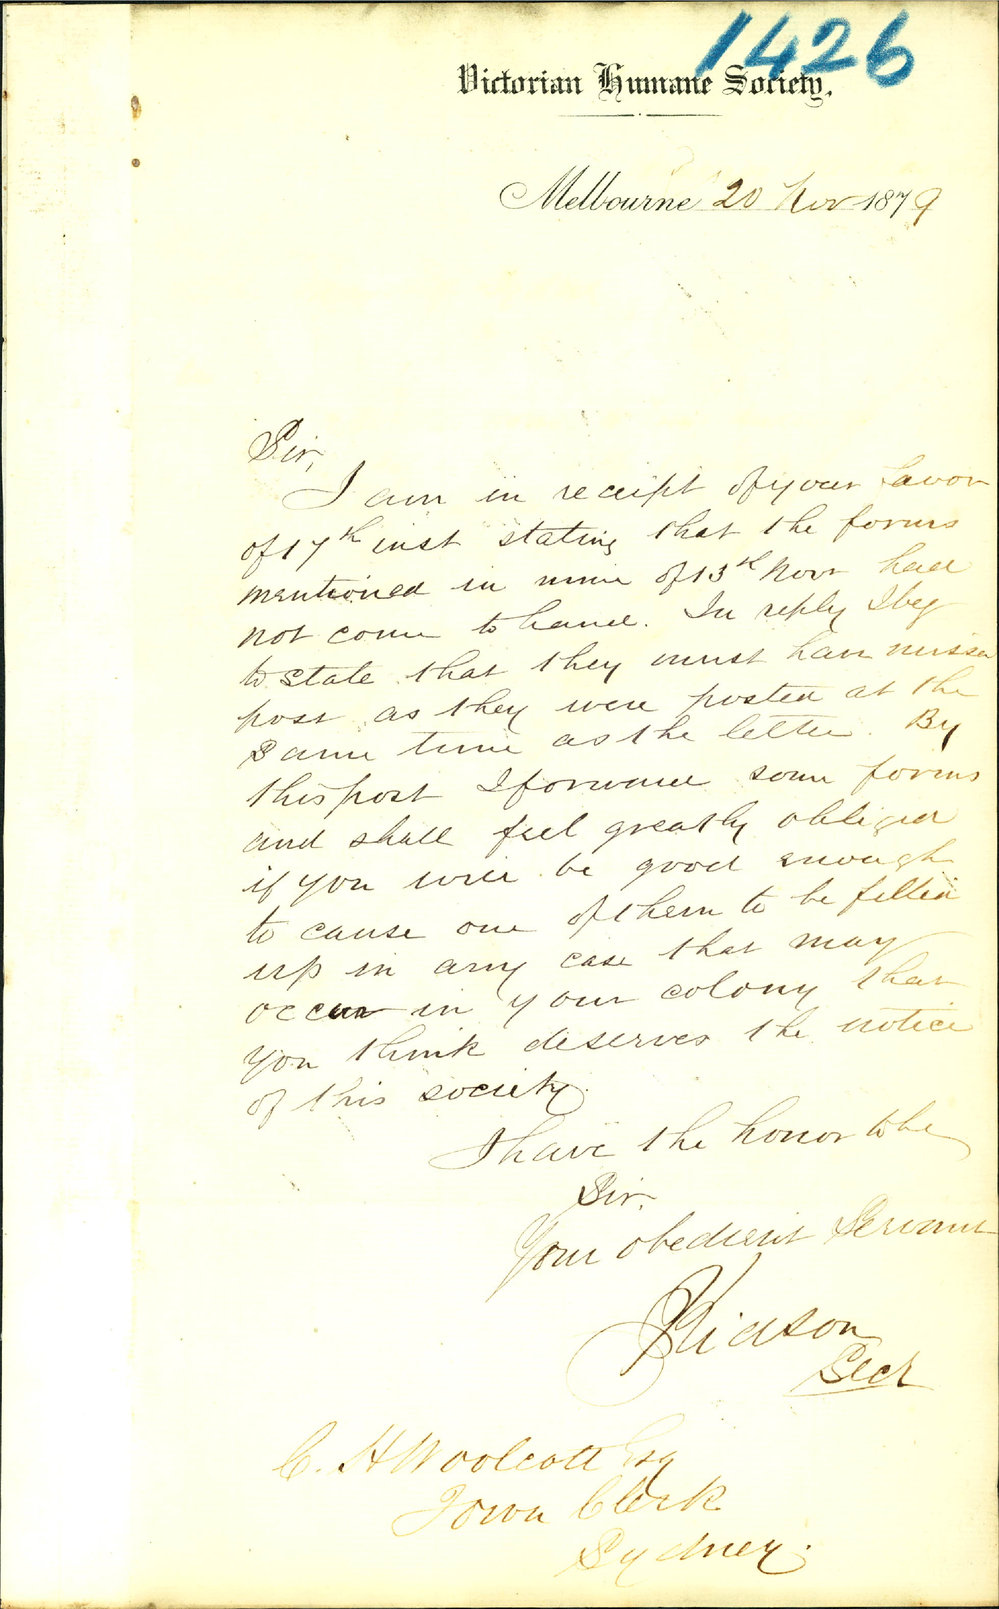 1426
Victorian Humane Society.
Melbourne 20 Nov 1879
Sir,
I am in receipt of your favor
of 17th inst stating that the forms
mentioned in mine of 13th Novr had
not come to hand. In reply I beg
to state that they must have missed
post as they were posted at the
same time as the letter. By
this post I forward some forms
and shall feel greatly obliged
if you will be good enough
to cause one of them to be filled
up in any case that may
occur in your colony that
you think deserves the notice
of this society.
I have the honor to be
Sir,
Your obedient Servant
Secy
C. H Woolcott Esq
Town Clerk
Sydney.